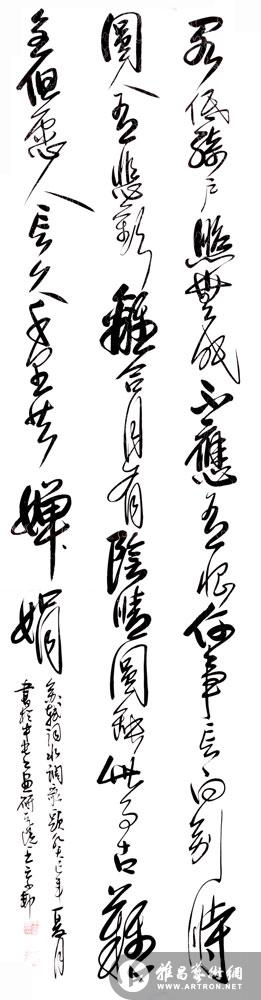 阁低綺户照無眠不應有恨何事長向別時
圓人有悲歡離合月有陰晴圓缺此事古難
全但愿人長久千里共嬋娟
蘇軾詞水調歌頭年夏月
書於中書画研究院
雅昌藝術網
WWW.ARTRON.NET